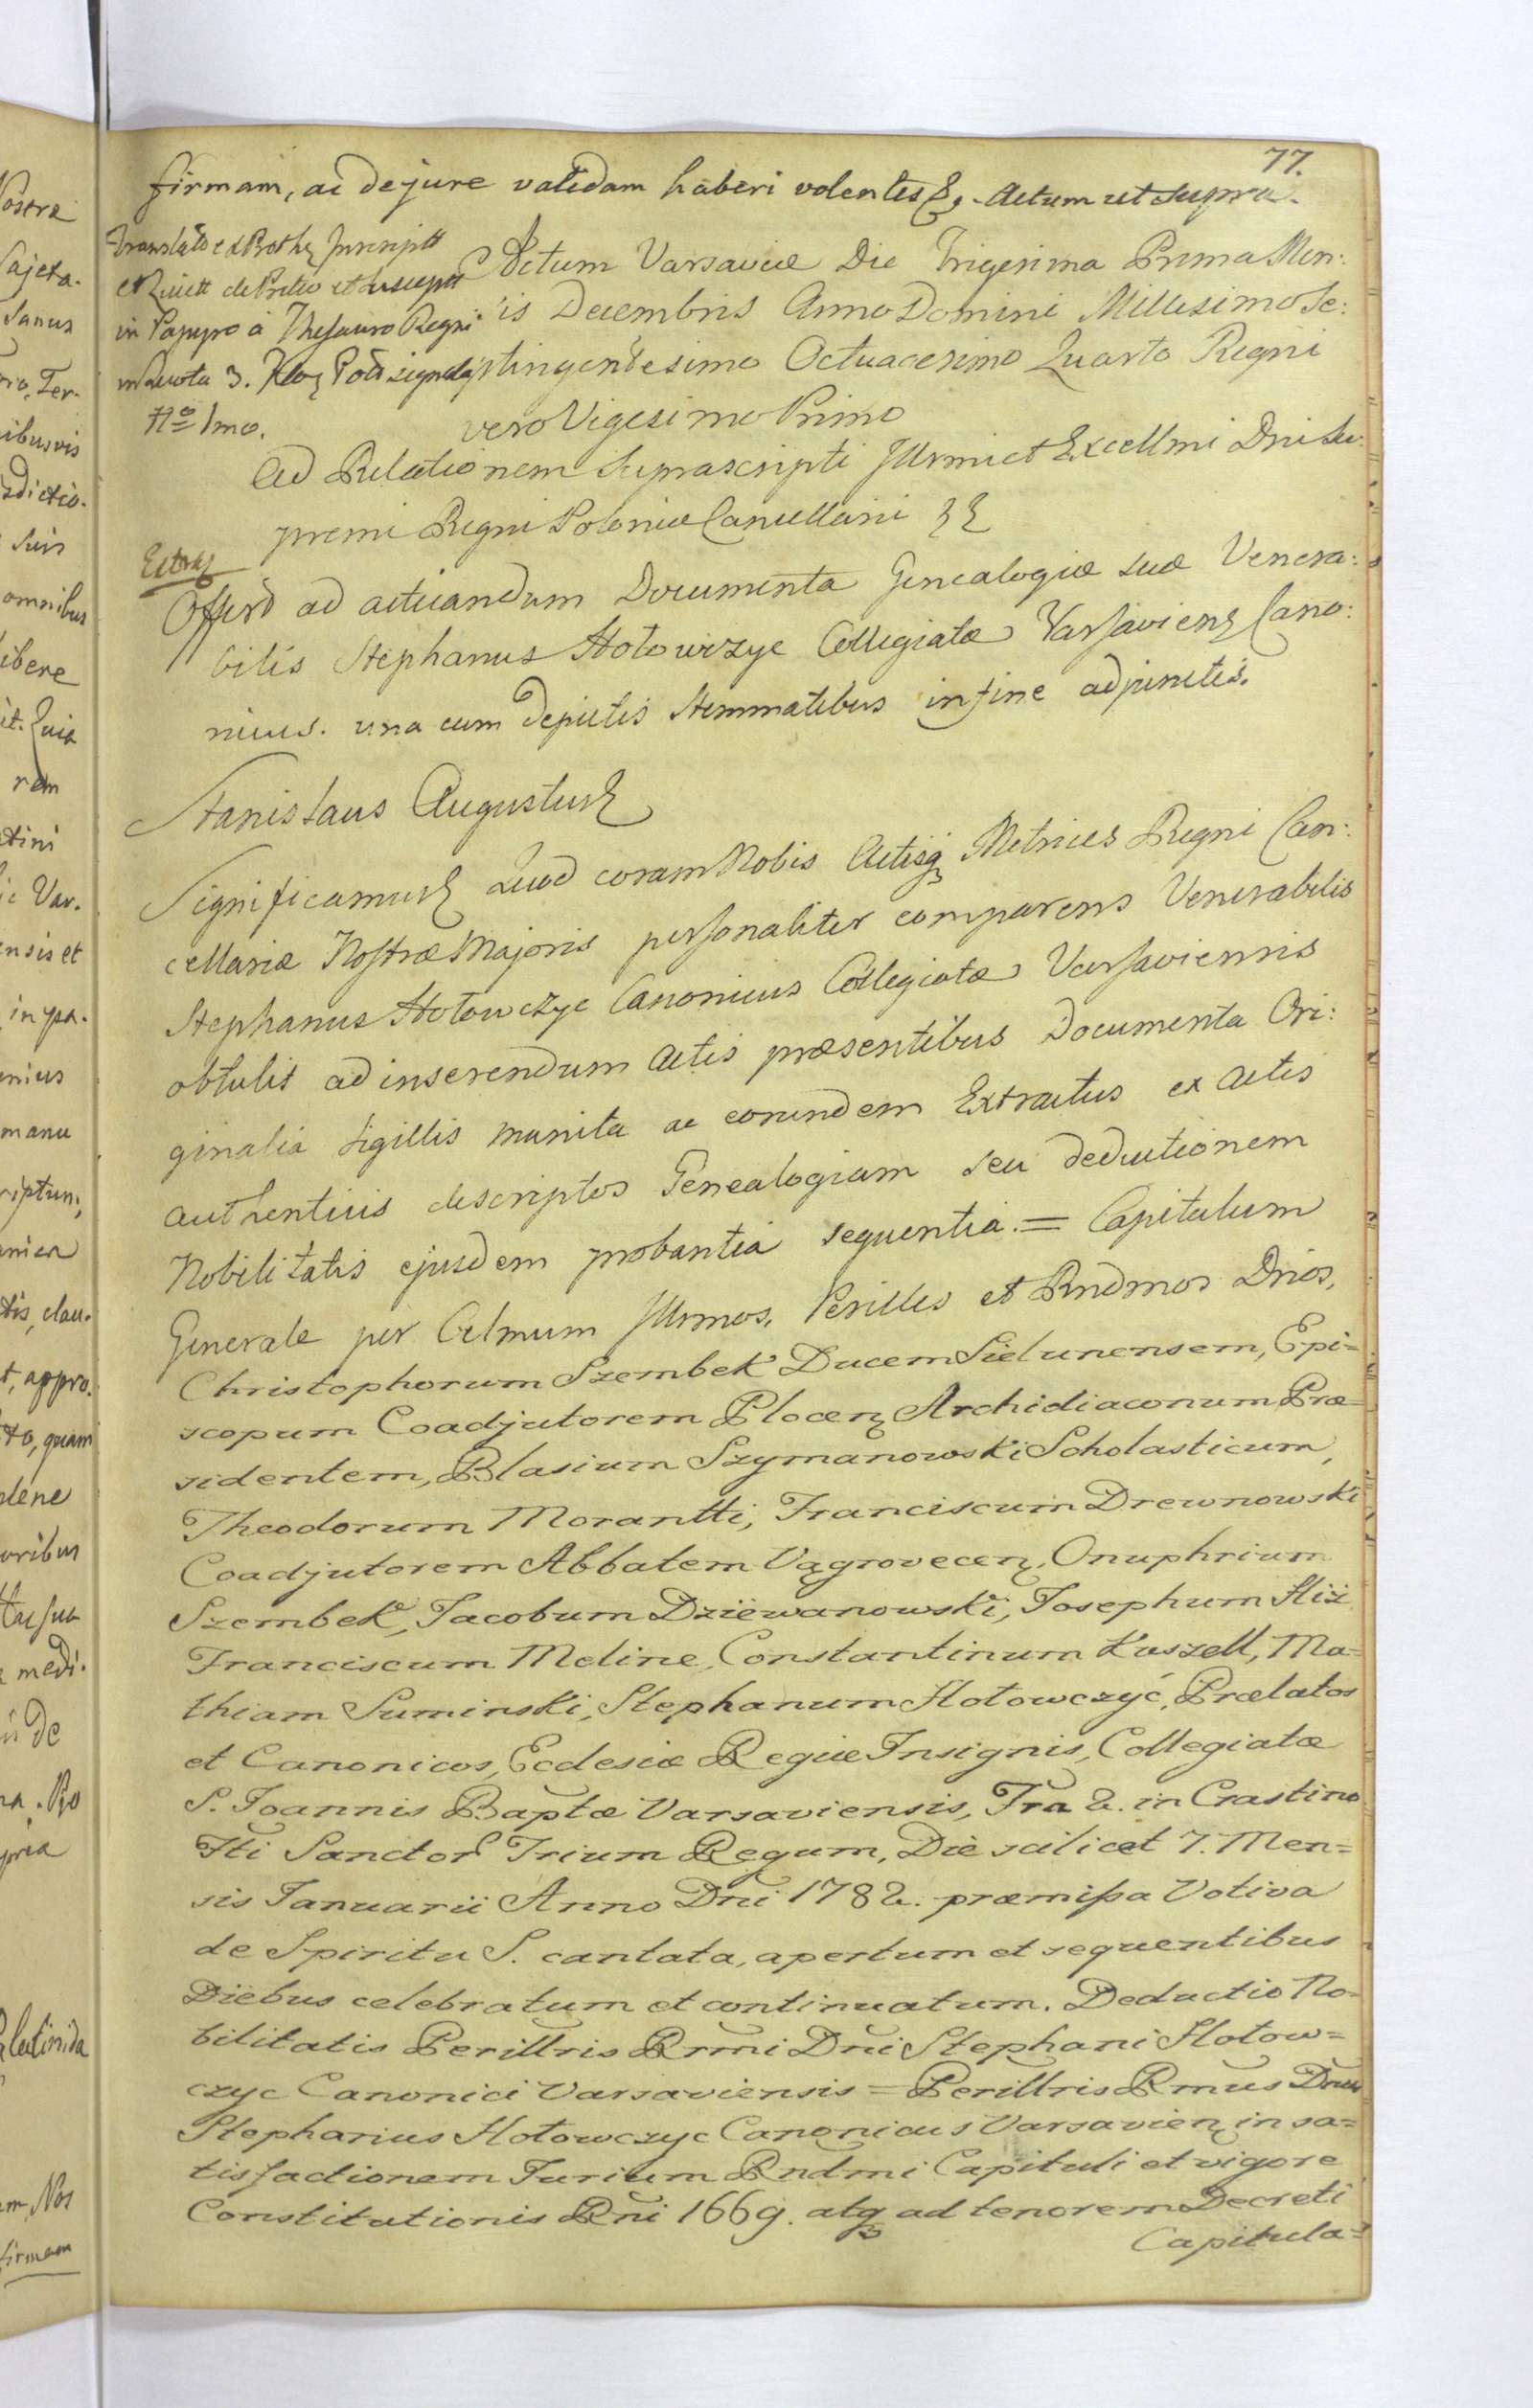 77.
firmam, ac de jure validam haberi volentes &. Actum ut supra.
Actum Varsaviæ Die Trigesima Prima Men:
sis Decembris Anno Domini Millesimo Se:
ptingentesimo Octuacesimo Quarto Regni
vero Vigesimo Primo
in Papyro à Thesauro Regni
Nº 1mo.
Ad Relationem Suprascripti Illrmi et Excellmi Dni Su:
premi Regni Poloniæ Cancellarii
Offert ad acticandum Documenta Genealogiæ suæ Venera:
bilis Stephanus Hołowczyc Collegiatæ Varsavien Cano:
nicus. una cum depictis Stemmatibus in fine adjunctis.
Stanislaus Augustus
Significamus Quod coram Nobis Actisq Metrices Regni Can:
cellariæ Nostræ Majoris personaliter comparens Venerabilis
Stephanus Hołowczyc Canonicus Collegiatæ Varsaviensis
obtulit ad inserendum Actis præsentibus Documenta Ori:
ginalia sigillis munita ac eorundem Extractus ex Actis
authenticis descriptos Genealogiam seu deductionem
Nobilitatis ejusdem probantia sequentia. = Capitulum
Generale per Celmum Illrmos, Perilles et Rndmos Dnos,
Christophorum Szembek Ducem Sielunensem, Epi=
scopum Coadjutorem Plocen Archidiaconum Præ=
sidentem, Blasium Szymanowski Scholasticum,
Theodorum Morantti, Franciscum Drewnowski
Coadjutorem Abbatem Vągrovecen, Onuphrium
Szembek, Jacobum Dziewanowski, Josephum Hiż
Franciscum Meline, Constantinum Kuszell, Ma=
thiam Suminski, Stephanum Hołowczyć, Prælatos
et Canonicos, Ecclesiæ Regiæ Insignis, Collegiatæ
S. Joannis Baptæ Varsaviensis, Fra 2. in Crastino
Fti Sanctor Trium Regum, Die scilicet 7. Men=
sis Januarii Anno Dni 1782. præmissa Votiva
de Spiritu S. cantata, apertum et sequentibus
Diebus celebratum et continuatum. Deductio No=
bilitatis Perillris Rrmi Dni Stephani Hołow=
czyc Canonici Varsaviensis = Perillris Rmus Dnus
Stephanus Hołowczyc Canonicus Varsavien in sa=
tisfactionem Jurium Rndmi Capituli et vigore
Constitutionis Rni 1669. atq ad tenorem Decreti
Capitula=